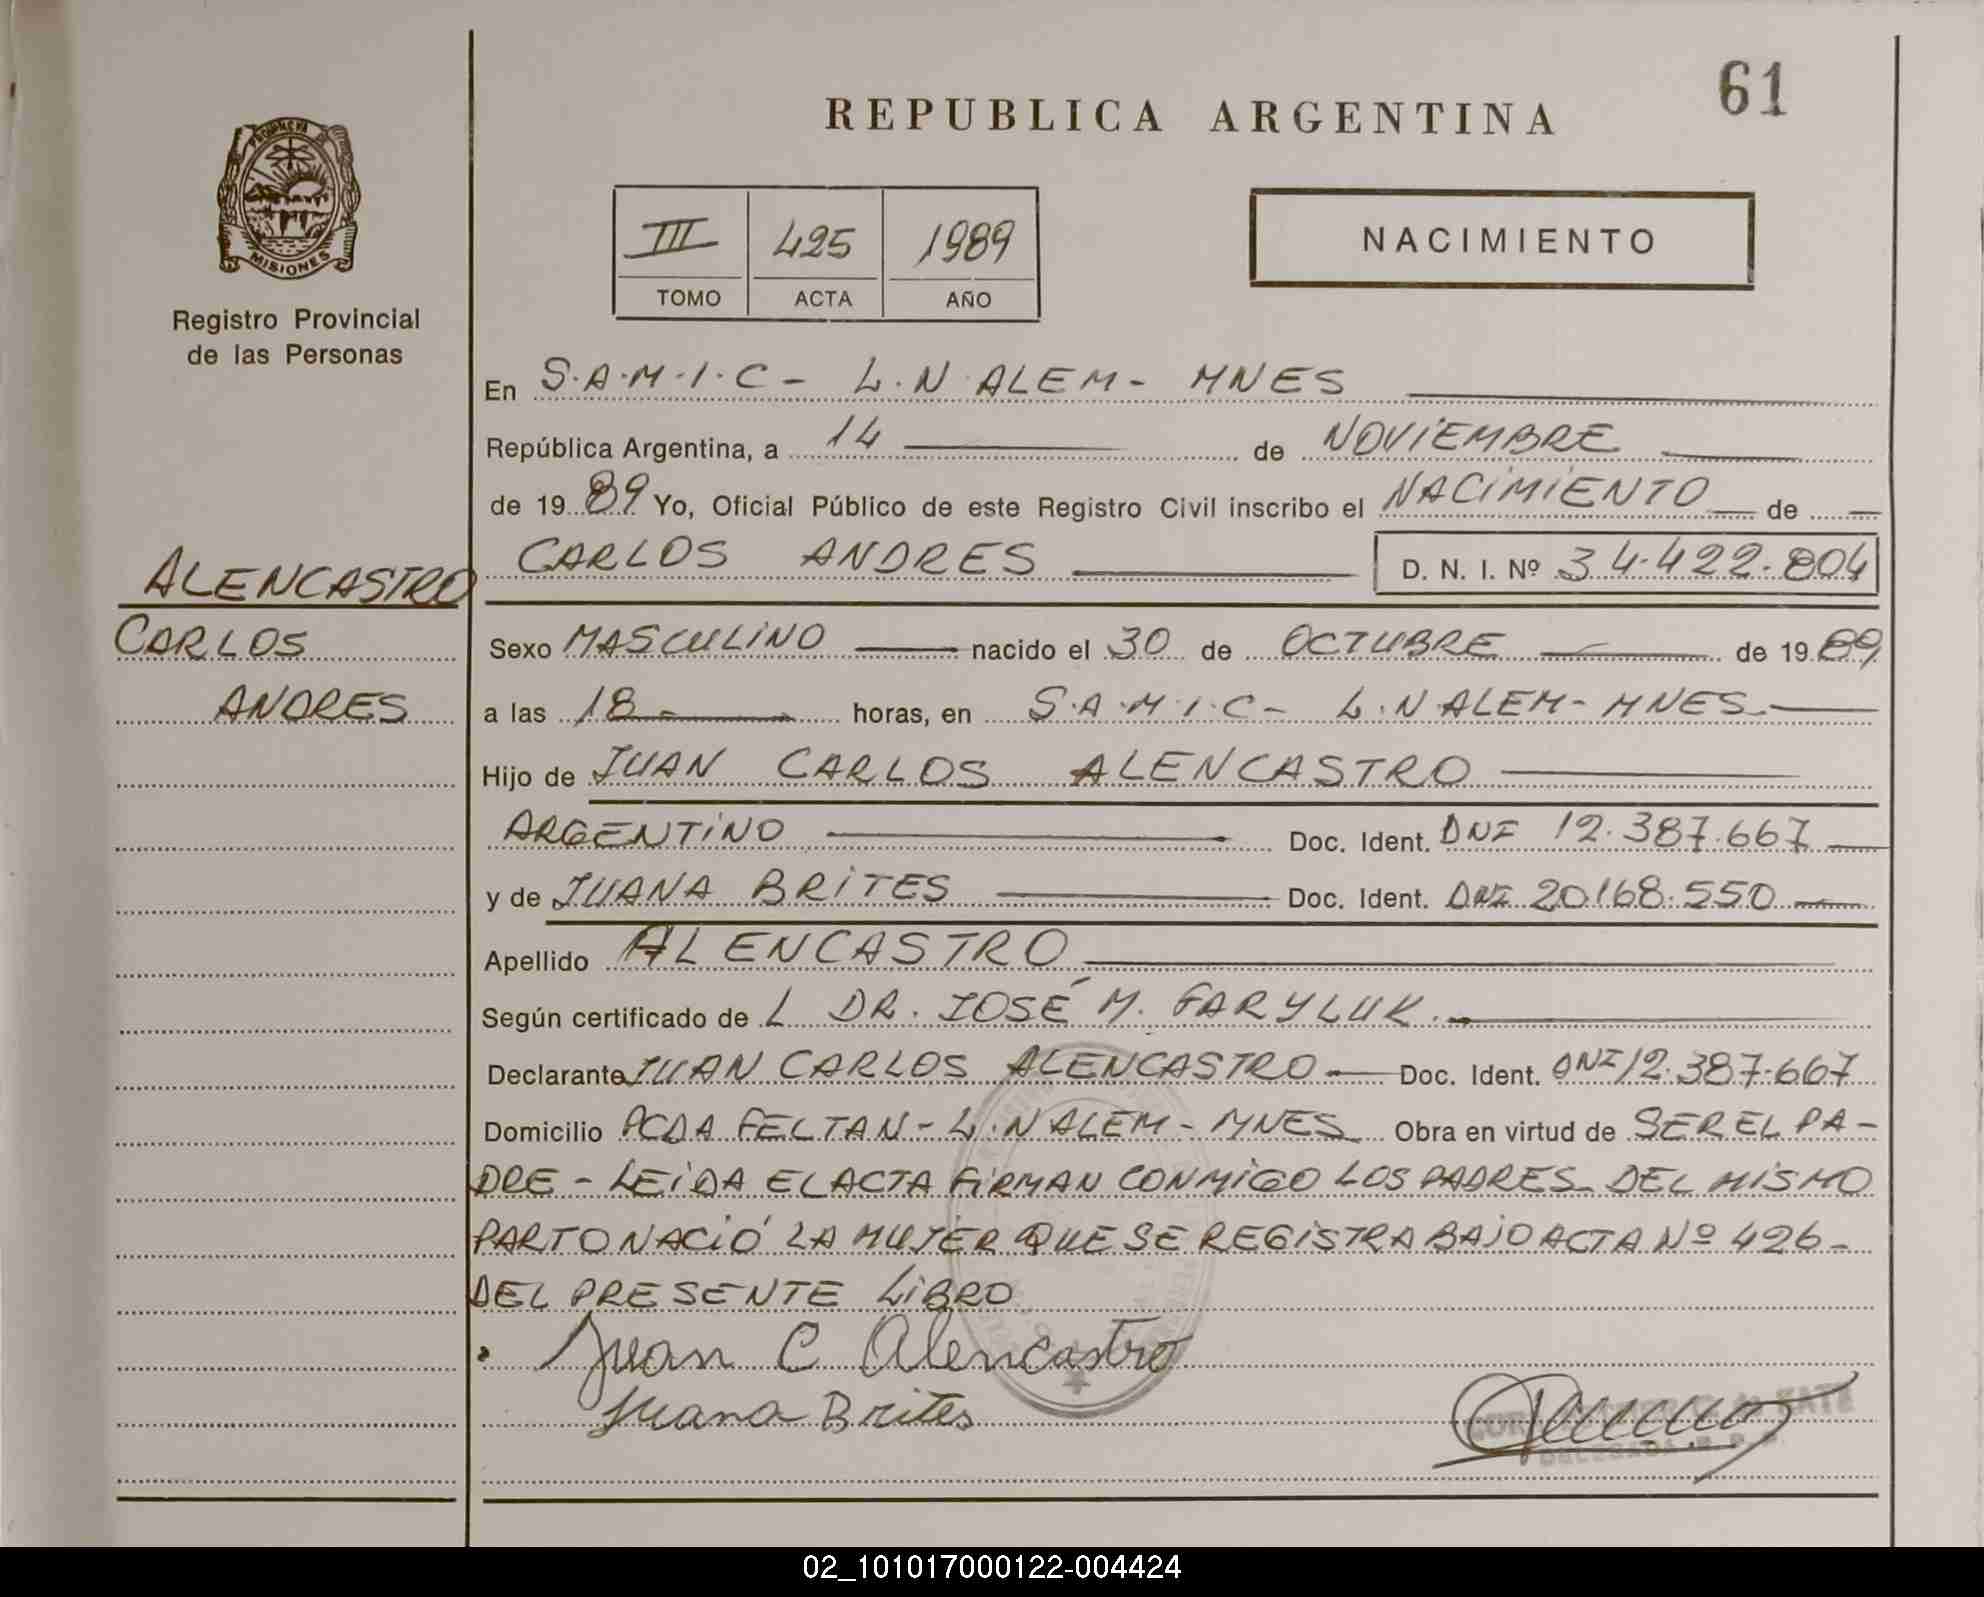 61
REPUBLICA ARGENTINA
PROVINCIA
MISIONES
Registro Provincial
de las Personas
III 425 1989
TOMO ACTA AÑO
NACIMIENTO
En S.A.M.I.C - L.N.ALEM - MNES
República Argentina, a 14 de NOVIEMBRE
de 19 89 Yo, Oficial Público de este Registro Civil inscribo el NACIMIENTO de
CARLOS ANDRES D. N. I. Nº 34.422.804
ALENCASTRO
CARLOS
ANDRES
Sexo MASCULINO nacido el 30 de OCTUBRE de 19 89
a las 18 - horas, en S.A.M.I.C - L.N.ALEM - MNES
Hijo de JUAN CARLOS ALENCASTRO
ARGENTINO Doc. Ident. DNI 12.387.667
y de JUANA BRITES Doc. Ident. DNI 20.168.550
Apellido ALENCASTRO
Según certificado de L DR. JOSÉ M. FARYLUK.
Declarante JUAN CARLOS ALENCASTRO Doc. Ident. DNI 12.387.667
Domicilio PCDA FELTAN - L.N ALEM - MNES Obra en virtud de SER EL PA-
DRE - LEIDA EL ACTA FIRMAN CONMIGO LOS PADRES. DEL MISMO
PARTO NACIÓ LA MUJER QUE SE REGISTRA BAJO ACTA Nº 426 -
DEL PRESENTE LIBRO
Juan C Alencastro
Juana Brites
02_101017000122-004424